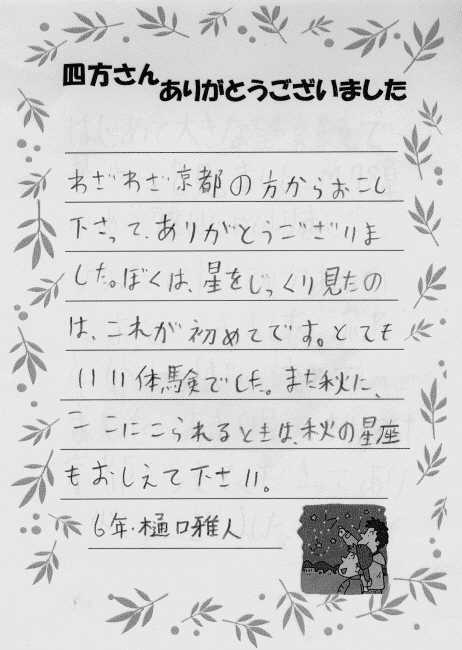 四方さん
ありがとうございました
わざわざ京都の方からおこし
下さって、ありがとうございま
した。ぼくは、星をじっくり見たの
は、これが初めてです。とても
いい体験でした。また秋に、
ここにこられるときは、秋の星座
もおしえて下さい。
6年・樋口雅人